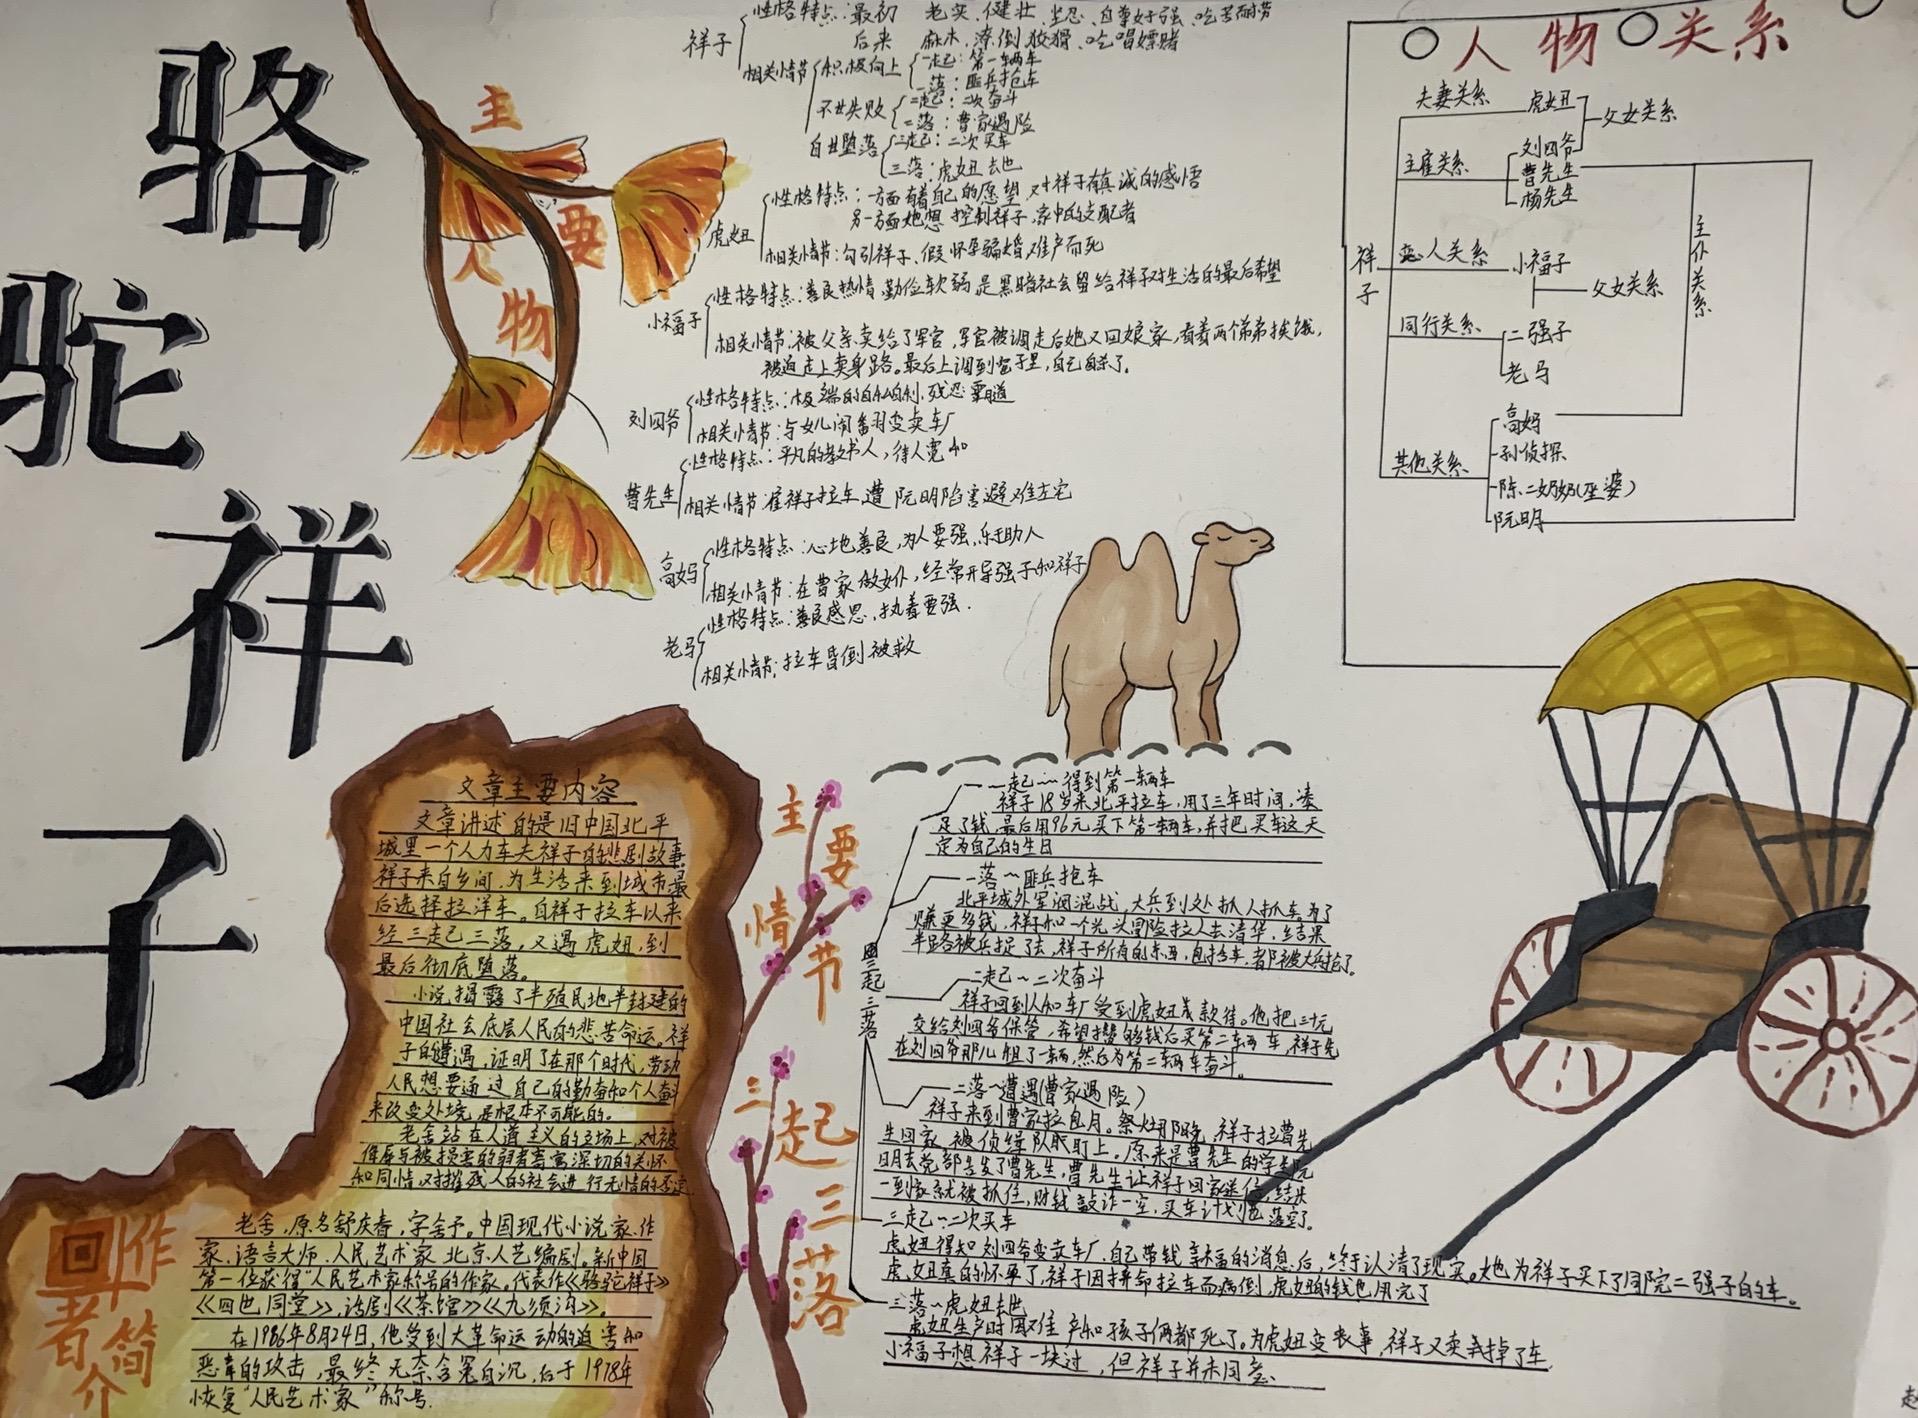 骆驼祥子
主要人物
祥子
性格特点：最初 老实、健壮、坚忍、自尊好强、吃苦耐劳
后来 麻木、潦倒狡猾、吃喝嫖赌
相关情节
积极向上
一起：第一辆车
一落：匪兵抢车
不甘失败
二起：二次奋斗
二落：曹家遇险
自甘堕落
三起：二次买车
三落：虎妞去世
虎妞
性格特点：一方面有着自己的愿望，对祥子有真诚的感悟
另一方面她想控制祥子，家中的支配者
相关情节：勾引祥子、假怀孕骗婚，难产而死
小福子
性格特点：善良热情、勤俭软弱是黑暗社会留给祥子对生活的最后希望
相关情节：被父亲卖给了军官，军官被调走后她又回娘家，看着两个弟弟挨饿，
被迫走上卖身路。最后上调到窑子里，自己自杀了。
刘四爷
性格特点：极端的自私自利，残忍霸道
相关情节：与女儿闹翻变卖车厂
曹先生
性格特点：平凡的教书人，待人宽和
相关情节：雇祥子拉车，遭阮明陷害避难左宅
高妈
性格特点：心地善良，为人要强，乐于助人
相关情节：在曹家做女仆，经常开导强子和祥子
老马
性格特点：善良感恩，执着要强.
相关情节：拉车昏倒被救
人物关系
祥子
夫妻关系 虎妞
父女关系
主雇关系
刘四爷
曹先生
杨先生
恋人关系 小福子
父女关系
主仆关系
同行关系 二强子
老马
其他关系
高妈
孙侦探
陈二奶奶（巫婆）
阮明
文章主要内容
文章讲述的是旧中国北平
城里一个人力车夫祥子的悲剧故事
祥子来自乡间，为生活来到城市最
后选择拉洋车。自祥子拉车以来
经三起三落，又遇虎妞，到
最后彻底堕落。
小说揭露了半殖民地半封建的
中国社会底层人民的悲苦命运。祥
子的遭遇，证明了在那个时代，劳动
人民想要通过自己的勤奋和个人奋斗
来改变处境，是根本不可能的。
老舍站在人道主义的立场上，对被
侮辱与被损害的弱者寄寓深切的关怀
和同情，对摧残人的社会进行无情的否定
作者简介
老舍，原名舒庆春，字舍予。中国现代小说家、作
家、语言大师、人民艺术家，北京人艺编剧。新中国
第一位获得“人民艺术家称号的作家。代表作《骆驼祥子》
《四世同堂》，话剧《茶馆》《九须沟》。
在1966年8月24日，他受到大革命运动的迫害和
恶毒的攻击，最终无奈含冤自沉，后于1978年
恢复“人民艺术家”称号.
主要情节
三起三落
三起三落
一起～得到第一辆车
祥子18岁来北平拉车，用了三年时间，凑
足了钱，最后用96元买下第一辆车，并把买车这天
定为自己的生日
一落～匪兵抢车
北平城外军阀混战，大兵到处抓人抓车。为了
赚更多钱，祥子和一个光头冒险拉人去清华，结果
半路被兵捉了去，祥子所有的东西，包括车，都被大兵抢了。
二起～二次奋斗
祥子回到人和车厂受到虎妞款待。他把三十元
交给刘四爷保管，希望攒够钱后买第二车辆车，祥子先
在刘四爷那儿租了一辆，然后为第二辆车奋斗。
二落～遭遇（曹家遇险）
祥子来到曹家拉包月。祭灶那晚，祥子拉曹先
生回家，被侦缉队眼盯上。原来是曹先生的学生阮
明去党部告发了曹先生，曹先生让祥子回家送信，结果
一到家就被抓住，财钱敲诈一空，买车计划落空了。
三起～二次买车
虎妞得知刘四爷变卖车厂，自己带钱享福的消息后，终于认清了现实。她为祥子买下了同院二强子的车。
虎妞真的怀孕了，祥子因拼命拉车而病倒，虎妞的钱也用完了
三落～虎妞去世
虎妞生产时因难产和孩子俩都死了。为虎妞变丧事，祥子又卖掉了车，
小福子想祥子一块过，但祥子并未同意、
赵